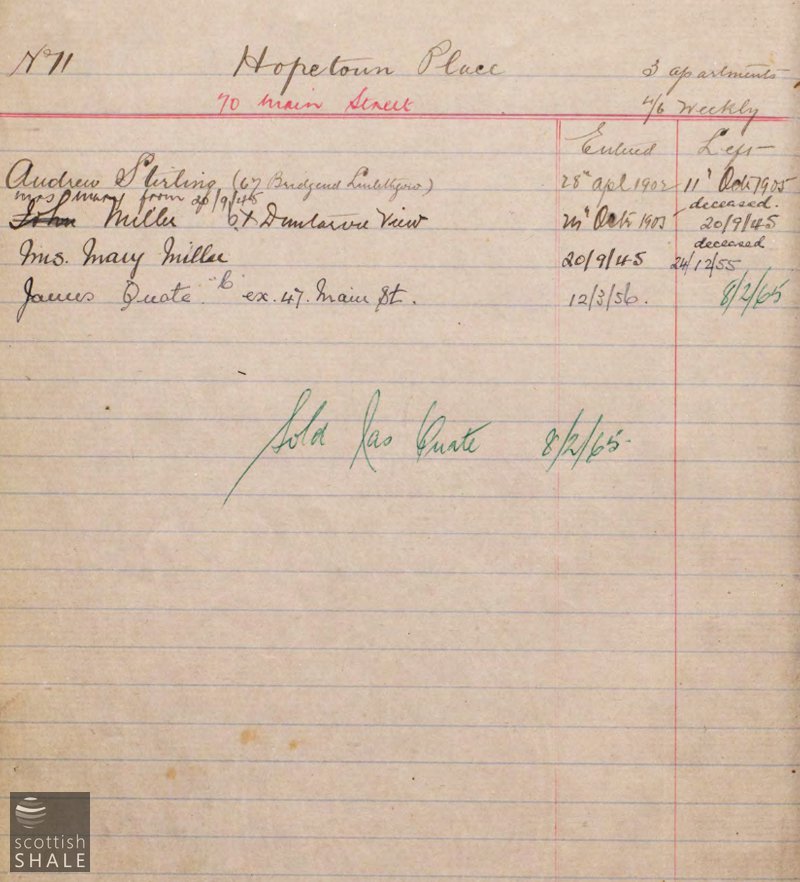 No 11 Hopetown Place 3 apartments
70 Main Street 4/6 Weekly
Entered Left
Andrew Stirling (67 Bridgend Linlithgow) 28" Apl 1902 11" Oct 1905
Mrs Mary from 20/9/45 deceased.
John Miller 6 Duntarvie View Oct 1905 20/9/45
deceased
Mrs. Mary Miller 20/9/45 24/12/55
James Quate ex. 47. Main St. 12/3/56. 8/2/65
Sold Jas Quate 8/2/65
scottish
SHALE